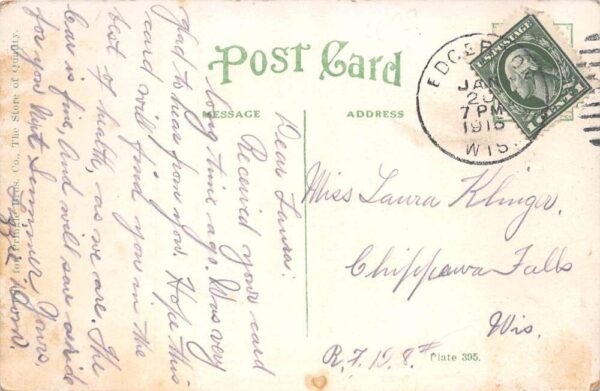 Post Card
MESSAGE
ADDRESS
EDGER
JAN
7 PM
1915
WIS.
U.S. POSTAGE
1 CENT 1
Dear Laura:
Received your card
long time ago. Was very
glad to hear from you. Hope this
card will find you in the
best of health, as we are. The
bear is fine, And will save a ride
for you next Summer. Yours,
Miss Laura Klinger.
Chippewa Falls
Wis.
R.F.D. 8.
Plate 395.
Bros. Co., The Store of Quality.